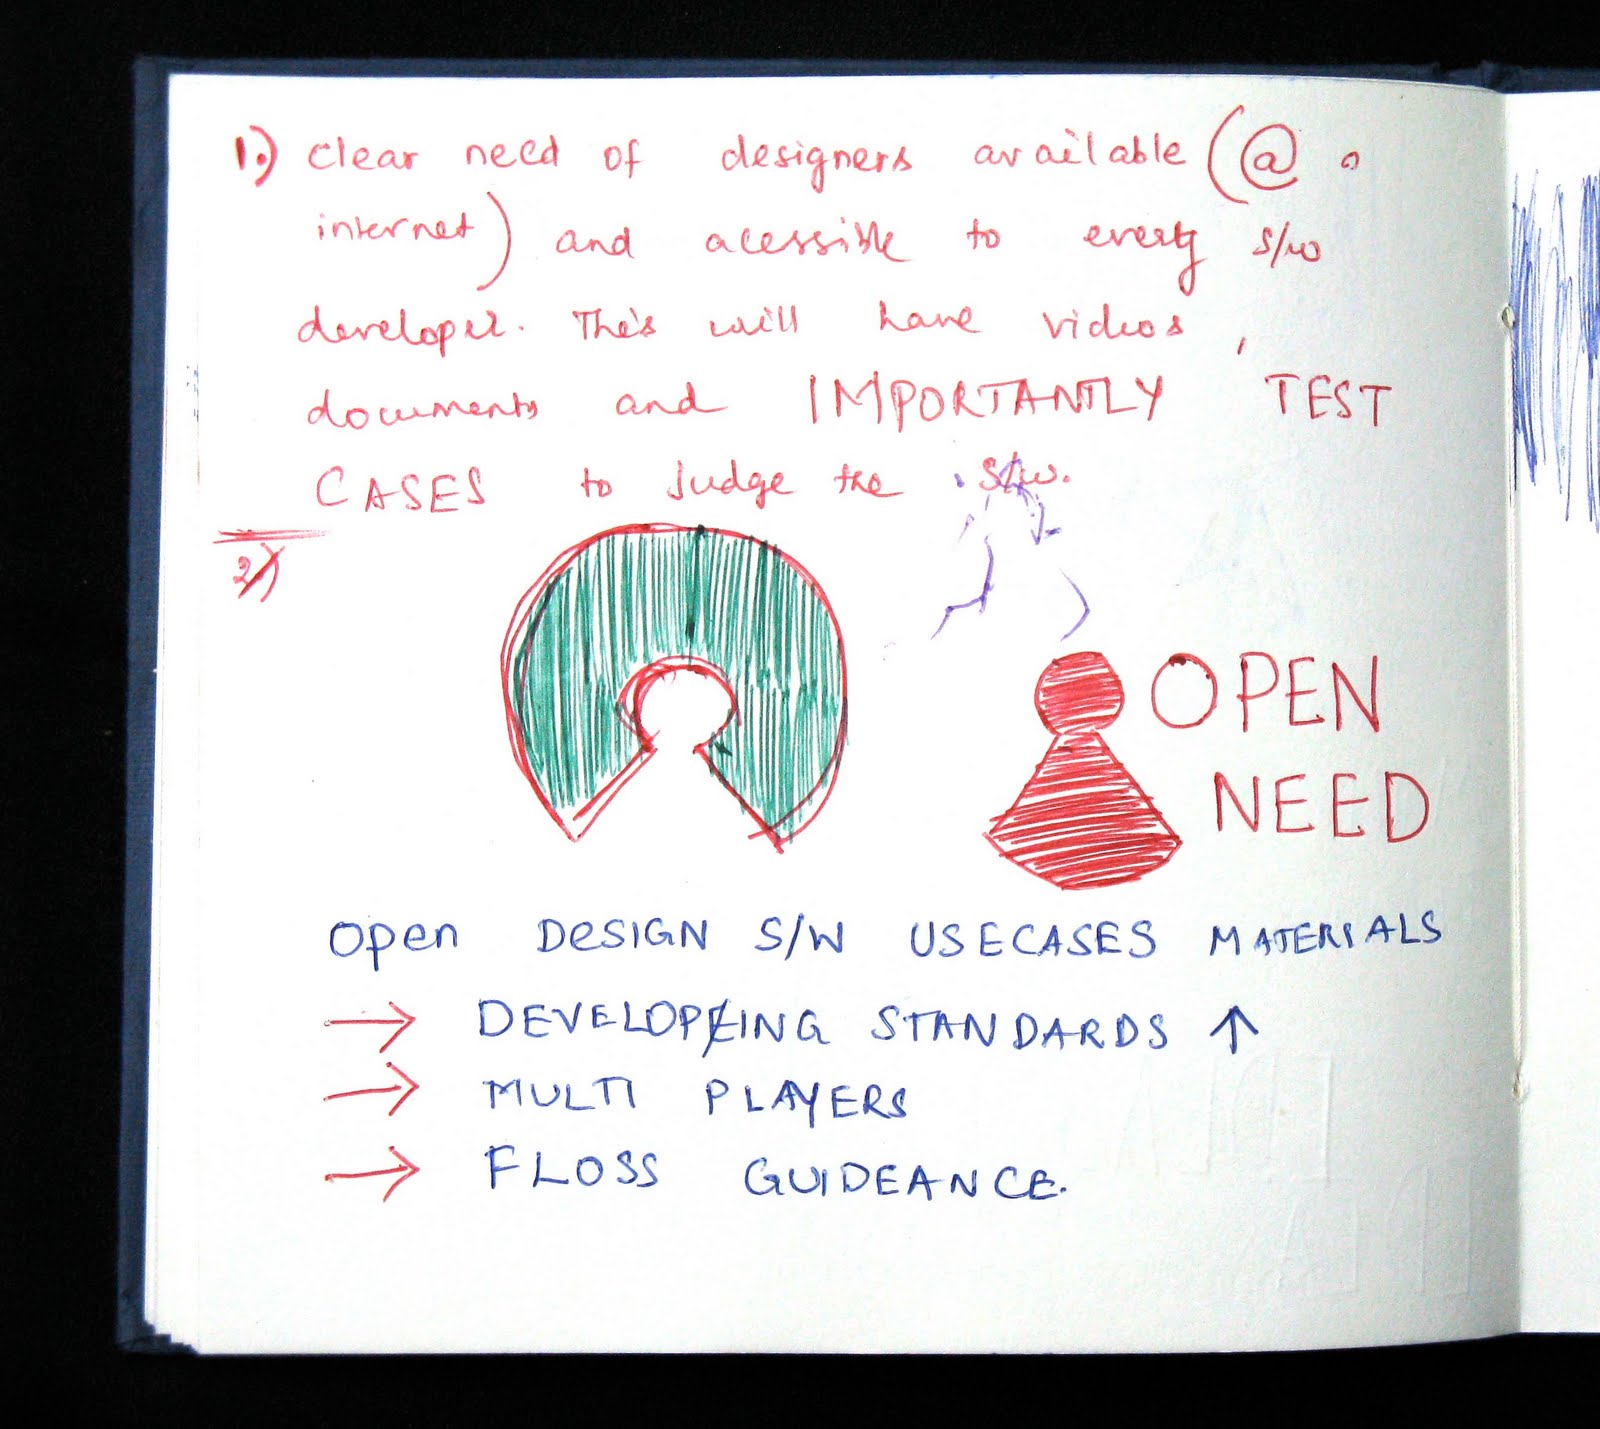 1.) clear need of designers available (@ o
internet) and acessible to every s/w
developer. This will have videos,
documents and IMPORTANTLY TEST
CASES to Judge the s/w.
2)
OPEN
NEED
Open DeSIGN S/W USECASES MATERIALS
→ DEVELOPING STANDARDS ↑
→ MULTI PLAYERS
→ FLOSS GUIDEANCE.